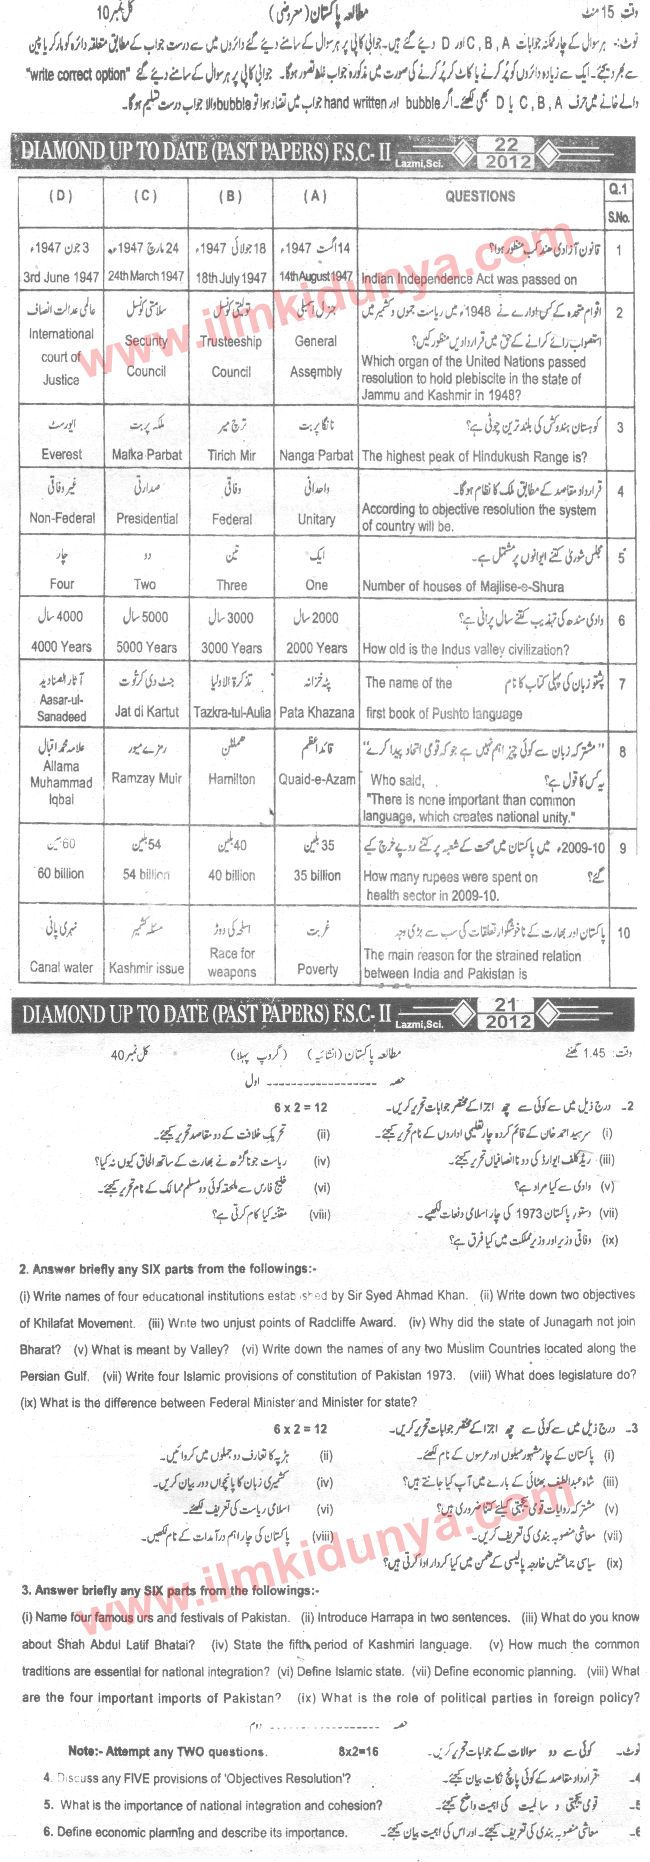 وقت 15 منٹ مطالعہ پاکستان (معروضی) کل نمبر 10
نوٹ:۔ ہر سوال کے چار ممکنہ جوابات C, B, A اور D دیئے گئے ہیں۔ جوابی کاپی پر ہر سوال کے سامنے دیئے گئے دائروں میں سے درست جواب کے مطابق متعلقہ دائرہ کو مارکر یا پین
سے بھر دیجئے۔ ایک سے زیادہ دائروں کو پُر کرنے یا کاٹ کر پُر کرنے کی صورت میں مذکورہ جواب غلط تصور ہوگا۔ جوابی کاپی پر ہر سوال کے سامنے دیئے گئے "write correct option"
والے خانے میں حرف C, B, A یا D بھی لکھئے۔ اگر bubble اور hand written جواب میں تضاد ہوا تو bubble والا جواب درست تسلیم ہوگا۔
DIAMOND UP TO DATE (PAST PAPERS) F.S.C- II Lazmi,Sci. 22 2012
(D) (C) (B) (A) QUESTIONS Q.1 S.No.
3 جون 1947ء 24 مارچ 1947ء 18 جولائی 1947ء 14 اگست 1947ء قانون آزادی ہند کب منظور ہوا؟ 1
3rd June 1947 24th March 1947 18th July 1947 14th August 1947 Indian Independence Act was passed on
عالمی عدالت انصاف سلامتی کونسل تولیتی کونسل جنرل اسمبلی اقوام متحدہ کے کس ادارے نے 1948ء میں ریاست جموں و کشمیر میں 2
استصواب رائے کرانے کے حق میں قراردادیں منظور کیں؟
International court of Justice Security Council Trusteeship Council General Assembly Which organ of the United Nations passed resolution to hold plebiscite in the state of Jammu and Kashmir in 1948?
ایورسٹ ملکہ پربت ترچ میر نانگا پربت کوہستان ہندوکش کی بلند ترین چوٹی ہے؟ 3
Everest Malka Parbat Tirich Mir Nanga Parbat The highest peak of Hindukush Range is?
غیر وفاقی صدارتی وفاقی واحدانی قرارداد مقاصد کے مطابق ملک کا نظام ہوگا۔ 4
Non-Federal Presidential Federal Unitary According to objective resolution the system of country will be.
چار دو تین ایک مجلس شوریٰ کتنے ایوانوں پر مشتمل ہے۔ 5
Four Two Three One Number of houses of Majlise-e-Shura
4000 سال 5000 سال 3000 سال 2000 سال وادی سندھ کی تہذیب کتنے سال پرانی ہے؟ 6
4000 Years 5000 Years 3000 Years 2000 Years How old is the Indus valley civilization?
آثار الصنادید جٹ دی کرتوت تذکرۃ الاولیا پٹہ خزانہ The name of the پشتو زبان کی پہلی کتاب کا نام 7
Aasar-ul-Sanadeed Jat di Kartut Tazkra-tul-Aulia Pata Khazana first book of Pushto language
علامہ محمد اقبال رمزے میور ہملٹن قائداعظم "مشترکہ زبان سے کوئی چیز اہم نہیں ہے جو کہ قومی اتحاد پیدا کرے" 8
یہ کس کا قول ہے؟
Allama Muhammad Iqbal Ramzay Muir Hamilton Quaid-e-Azam Who said, "There is none important than common language, which creates national unity."
60 بلین 54 بلین 40 بلین 35 بلین 2009-10ء میں پاکستان میں صحت کے شعبہ پر کتنے روپے خرچ کیے گئے؟ 9
60 billion 54 billion 40 billion 35 billion How many rupees were spent on health sector in 2009-10.
نہری پانی مسئلہ کشمیر اسلحہ کی دوڑ غربت پاکستان اور بھارت کے ناخوشگوار تعلقات کی سب سے بڑی وجہ 10
Canal water Kashmir issue Race for weapons Poverty The main reason for the strained relation between India and Pakistan is
DIAMOND UP TO DATE (PAST PAPERS) F.S.C- II Lazmi,Sci. 21 2012
وقت: 1.45 گھنٹے مطالعہ پاکستان (انشائیہ) (گروپ پہلا) کل نمبر 40
حصہ ------------------ اول
2۔ درج ذیل میں سے کوئی سے چھ اجزا کے مختصر جوابات تحریر کریں۔ 6 x 2 = 12
(i) سرسید احمد خان کے قائم کردہ چار تعلیمی اداروں کے نام تحریر کیجئے۔ (ii) تحریک خلافت کے دو مقاصد تحریر کیجئے۔
(iii) ریڈکلف ایوارڈ کی دو ناانصافیاں تحریر کیجئے۔ (iv) ریاست جوناگڑھ نے بھارت کے ساتھ الحاق کیوں نہ کیا؟
(v) وادی سے کیا مراد ہے؟ (vi) خلیج فارس سے ملحقہ کوئی دو مسلم ممالک کے نام تحریر کیجئے۔
(vii) دستور پاکستان 1973 کی چار اسلامی دفعات لکھیے۔ (viii) مقننہ کیا کام کرتی ہے؟
(ix) وفاقی وزیر اور وزیر مملکت میں کیا فرق ہے؟
2. Answer briefly any SIX parts from the followings:-
(i) Write names of four educational institutions established by Sir Syed Ahmad Khan. (ii) Write down two objectives
of Khilafat Movement. (iii) Write two unjust points of Radcliffe Award. (iv) Why did the state of Junagarh not join
Bharat? (v) What is meant by Valley? (vi) Write down the names of any two Muslim Countries located along the
Persian Gulf. (vii) Write four Islamic provisions of constitution of Pakistan 1973. (viii) What does legislature do?
(ix) What is the difference between Federal Minister and Minister for state?
3۔ درج ذیل میں سے کوئی سے چھ اجزا کے مختصر جوابات تحریر کریں۔ 6 x 2 = 12
(i) پاکستان کے چار مشہور میلوں اور عرسوں کے نام لکھئے۔ (ii) ہڑپہ کا تعارف دو جملوں میں کروائیں۔
(iii) شاہ عبداللطیف بھٹائی کے بارے میں آپ کیا جانتے ہیں؟ (iv) کشمیری زبان کا پانچواں دور بیان کریں۔
(v) مشترکہ روایات قومی یکجہتی کیلئے کتنا ضروری ہیں؟ (vi) اسلامی ریاست کی تعریف لکھئے۔
(vii) معاشی منصوبہ بندی کی تعریف کریں۔ (viii) پاکستان کی چار اہم درآمدات کے نام لکھیں۔
(ix) سیاسی جماعتیں خارجہ پالیسی کے ضمن میں کیا کردار ادا کرتی ہیں؟
3. Answer briefly any SIX parts from the followings:-
(i) Name four famous urs and festivals of Pakistan. (ii) Introduce Harrapa in two sentences. (iii) What do you know
about Shah Abdul Latif Bhatai? (iv) State the fifth period of Kashmiri language. (v) How much the common
traditions are essential for national integration? (vi) Define Islamic state. (vii) Define economic planning. (viii) What
are the four important imports of Pakistan? (ix) What is the role of political parties in foreign policy?
حصہ ------------------ دوم
Note:- Attempt any TWO questions. 8x2=16 نوٹ۔ کوئی سے دو سوالات کے جوابات تحریر کریں۔
4. Discuss any FIVE provisions of 'Objectives Resolution'? 4۔ قرارداد مقاصد کے کوئی پانچ نکات بیان کیجئے۔
5. What is the importance of national integration and cohesion? 5۔ قومی یکجہتی و سالمیت کی اہمیت واضح کیجئے۔
6. Define economic planning and describe its importance. 6۔ معاشی منصوبہ بندی کی تعریف کیجئے۔ اور اس کی اہمیت بیان کیجئے۔
www.ilmkidunya.com
www.ilmkidunya.com